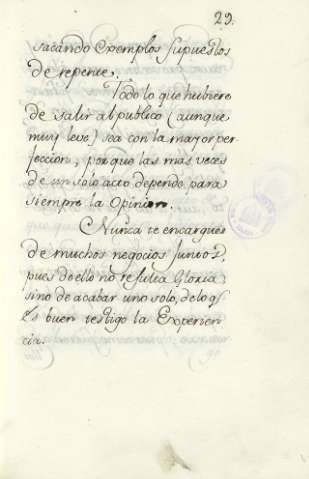 29.
sacando Exemplos supuestos
de repente.
Todo lo que hubiere
de salir al publico (aunque
muy leve) sea con la mayor per
feccion, porque las mas veces
de un solo acto depende para
siempre la Opinion.
Nunca te encargues
de muchos negocios juntos,
pues de ello no resulta Gloria
sino de acabar uno solo, de lo q͂
Es buen testigo la Experien
cia.